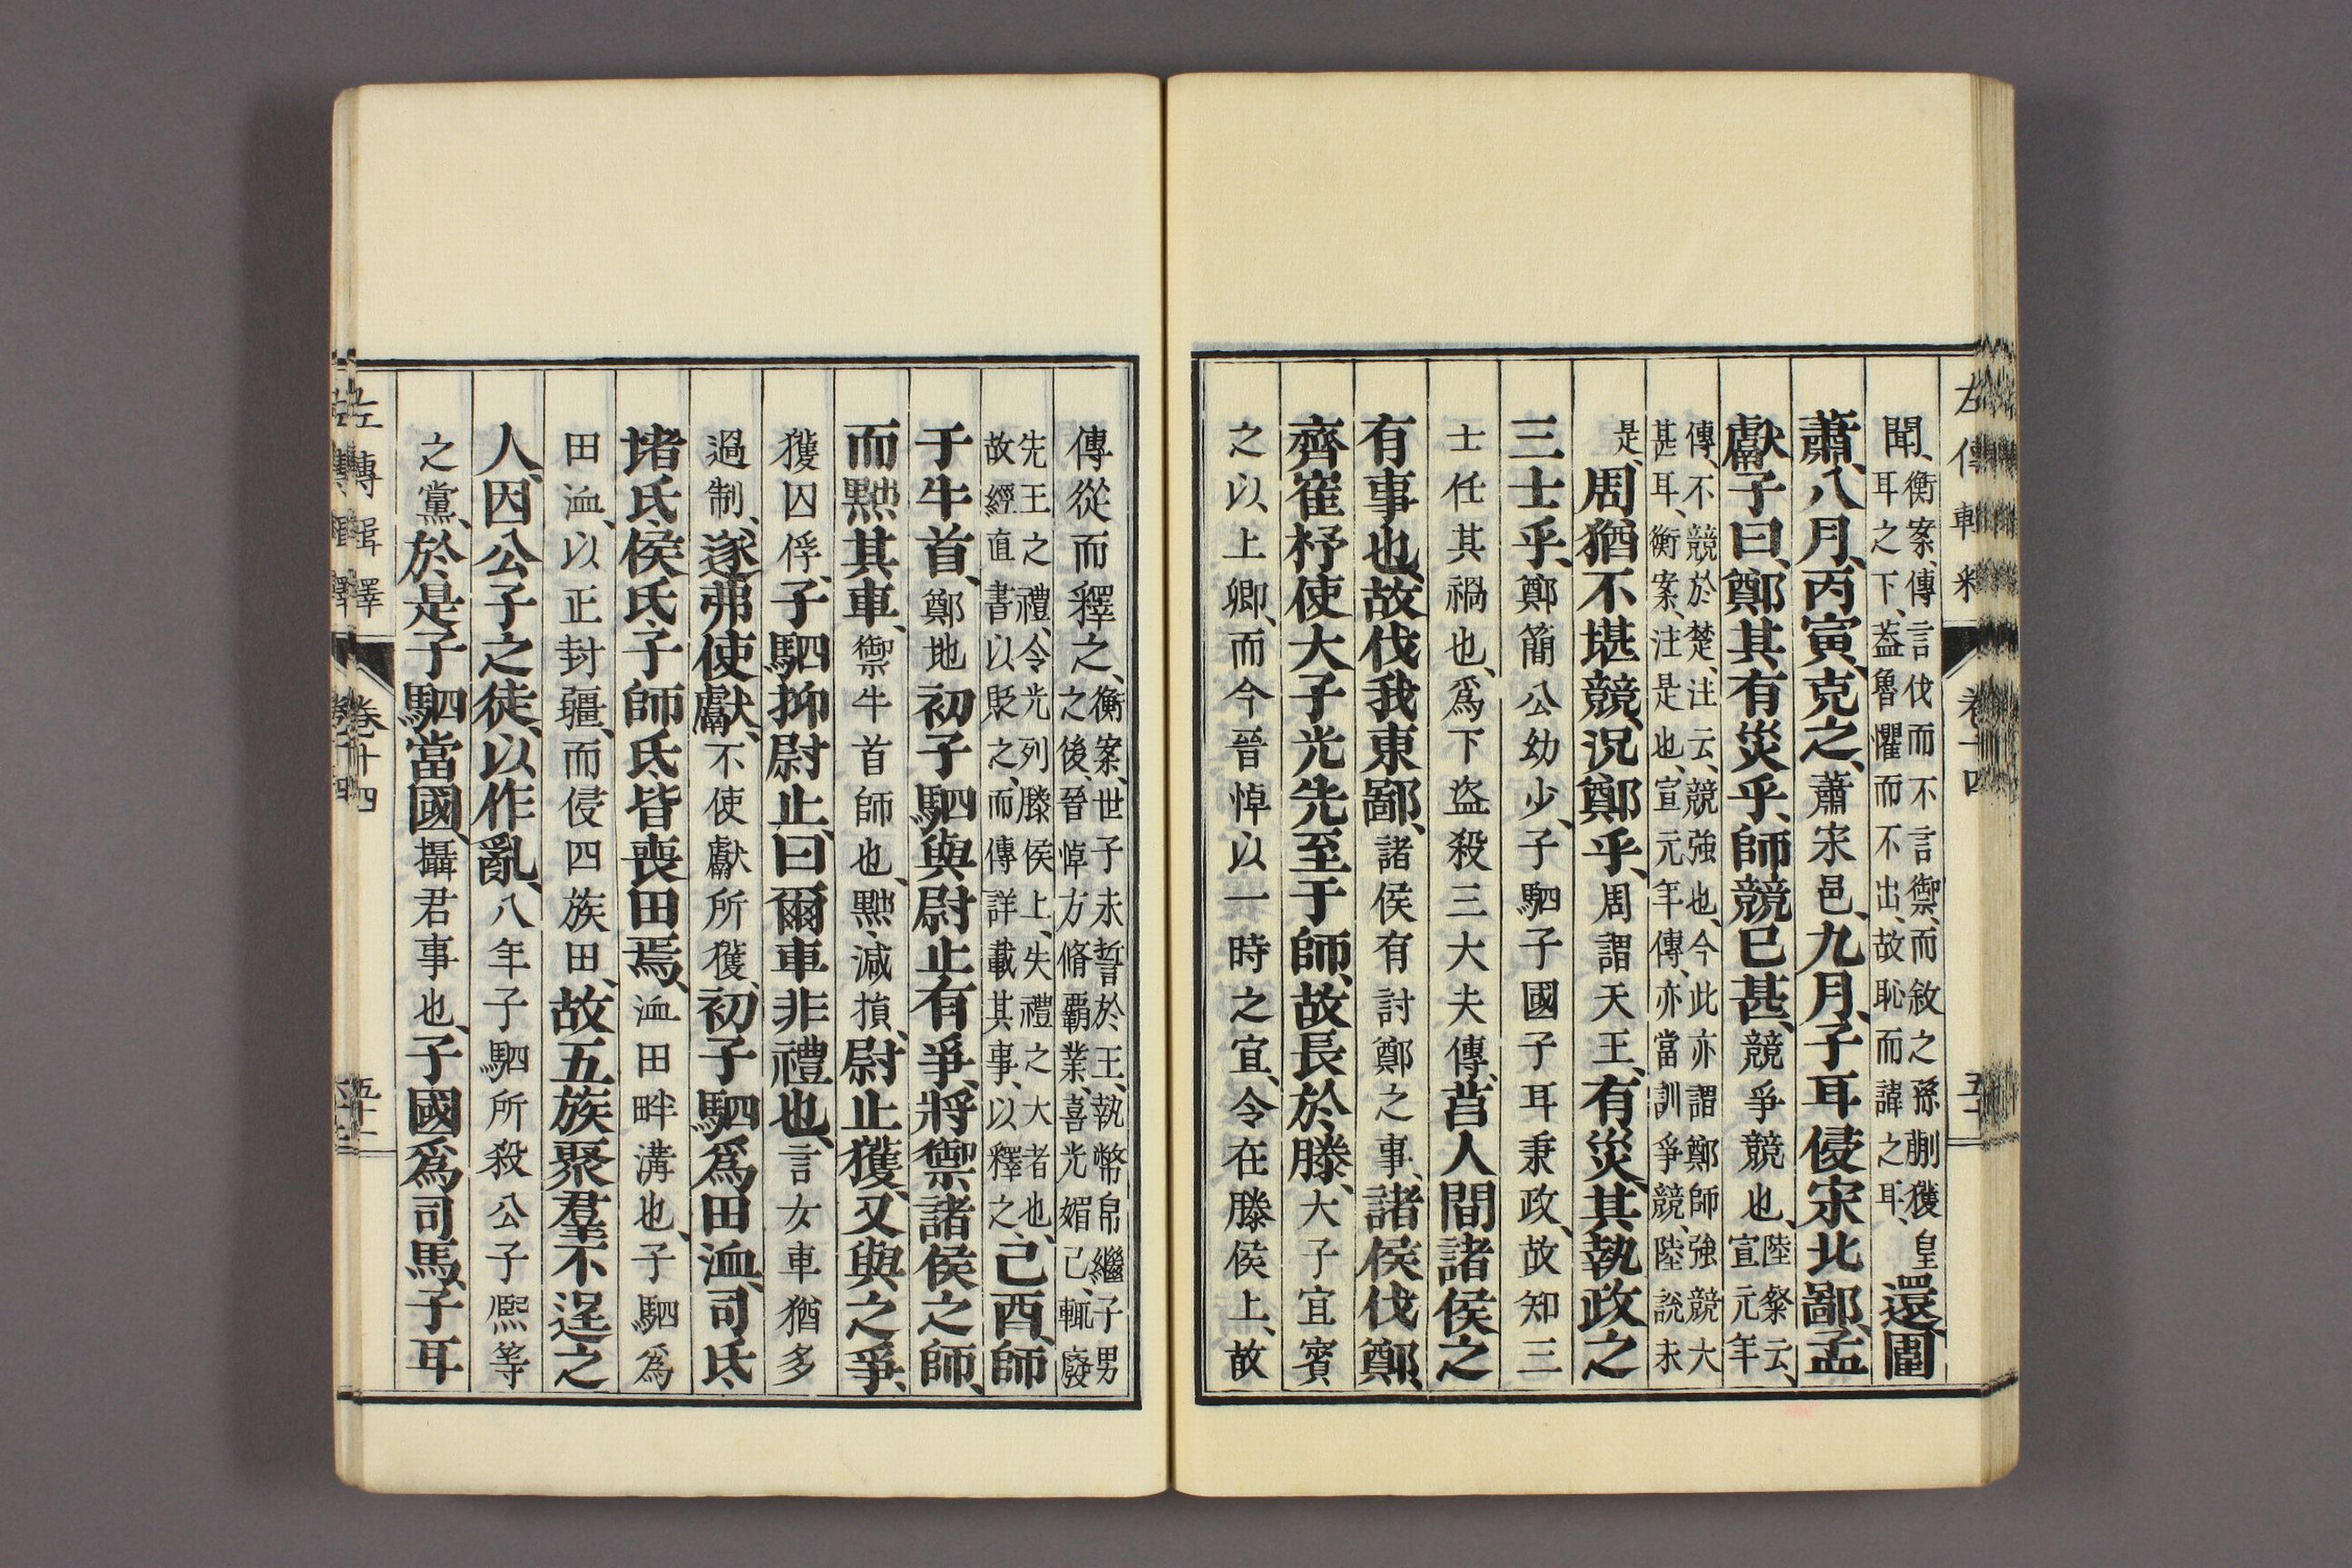 左傳輯釋 卷十四
聞、衡案、傳言伐而不言禦、而敘之孫蒯獲皇耳之下、葢魯懼而不出、故恥而諱之耳、還圍
蕭、八月、丙寅、克之、蕭宋邑、九月、子耳侵宋北鄙、孟
獻子曰、鄭其有災乎、師競已甚、競爭競也、陸粲云、宣元年
傳、不競於楚、注云、競強也、今此亦謂鄭師強競大甚耳、衡案、注是也、宣元年傳、亦當訓爭競、陸說未
是、周猶不堪競、況鄭乎、周謂天王、有災、其執政之
三士乎、鄭簡公幼少、子駟子國子耳秉政、故知三
士任其禍也、爲下盜殺三大夫傳、莒人間諸侯之
有事也、故伐我東鄙、諸侯有討鄭之事、諸侯伐鄭、
齊崔杼使大子光先至于師、故長於滕、大子宜賓
之以上卿、而今晉悼以一時之宜、令在滕侯上、故
傳從而釋之、衡案、世子未誓於王、執幣帛繼子男之後、晉悼方脩霸業、喜光媚己、輒廢
先王之禮、令光列滕侯上、失禮之大者也、故經直書以貶之、而傳詳載其事、以釋之、己酉、師
于牛首、鄭地初子駟與尉止有爭、將禦諸侯之師、
而黜其車、禦牛首師也、黜、減損、尉止獲、又與之爭、
獲囚俘、子駟抑尉止、曰、爾車非禮也、言女車猶多
過制、遂弗使獻、不使獻所獲、初子駟爲田洫、司氏、
堵氏侯氏、子師氏、皆喪田焉、洫田畔溝也、子駟爲
田洫、以正封疆、而侵四族田、故五族聚羣不逞之
人、因公子之徒、以作亂、八年子駟所殺公子熙等
之黨、於是子駟當國、攝君事也、子國爲司馬、子耳
左傳輯釋 卷十四